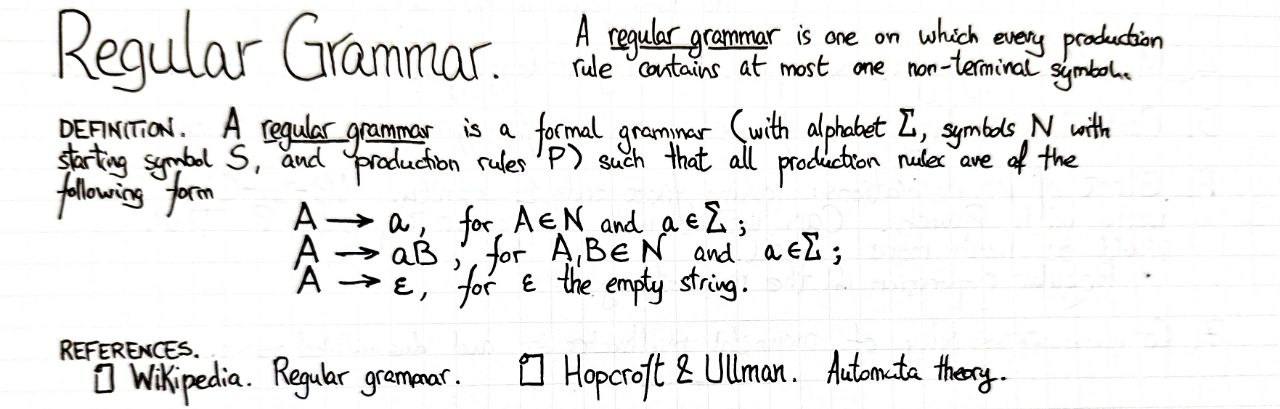 Regular Grammar.
A regular grammar is one on which every production
rule contains at most one non-terminal symbol.
DEFINITION. A regular grammar is a formal grammar (with alphabet Σ, symbols N with
starting symbol S, and production rules P) such that all production rules are of the
following form
A → a, for A ∈ N and a ∈ Σ;
A → aB, for A, B ∈ N and a ∈ Σ;
A → ε, for ε the empty string.
REFERENCES.
□ Wikipedia. Regular grammar. □ Hopcroft & Ullman. Automata theory.